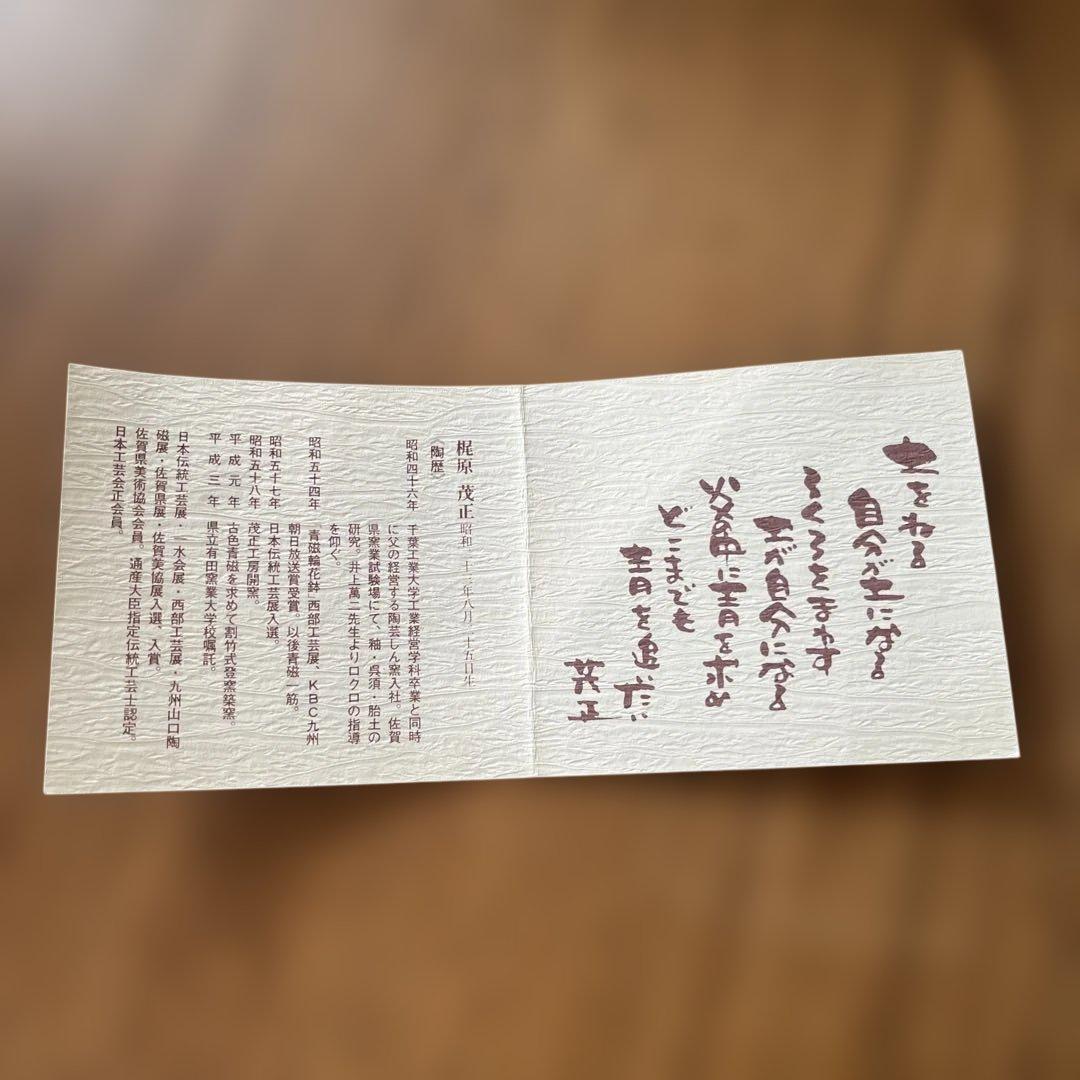 土をねる
自分が土になる
ろくろをまわす
土が自分になる
炎の中に青を求め
どこまでも
青を追いたい
茂正
梶原 茂正 昭和二十二年八月二十五日生
《陶歴》
昭和四十六年 千葉工業大学工業経営学科卒業と同時
に父の経営する陶芸しん窯入社。佐賀
県窯業試験場にて、釉・呉須・胎土の
研究。井上萬二先生よりロクロの指導
を仰ぐ。
昭和五十四年 「青磁輪花鉢」西部工芸展、KBC九州
朝日放送賞受賞。以後青磁一筋。
昭和五十七年 日本伝統工芸展入選。
昭和五十八年 茂正工房開窯。
平成元年 古色青磁を求めて割竹式登窯築窯。
平成三年 県立有田窯業大学校嘱託。
日本伝統工芸展・一水会展・西部工芸展・九州山口陶
磁展・佐賀県展・佐賀美協展入選、入賞。
佐賀県美術協会会員。通産大臣指定伝統工芸士認定。
日本工芸会正会員。